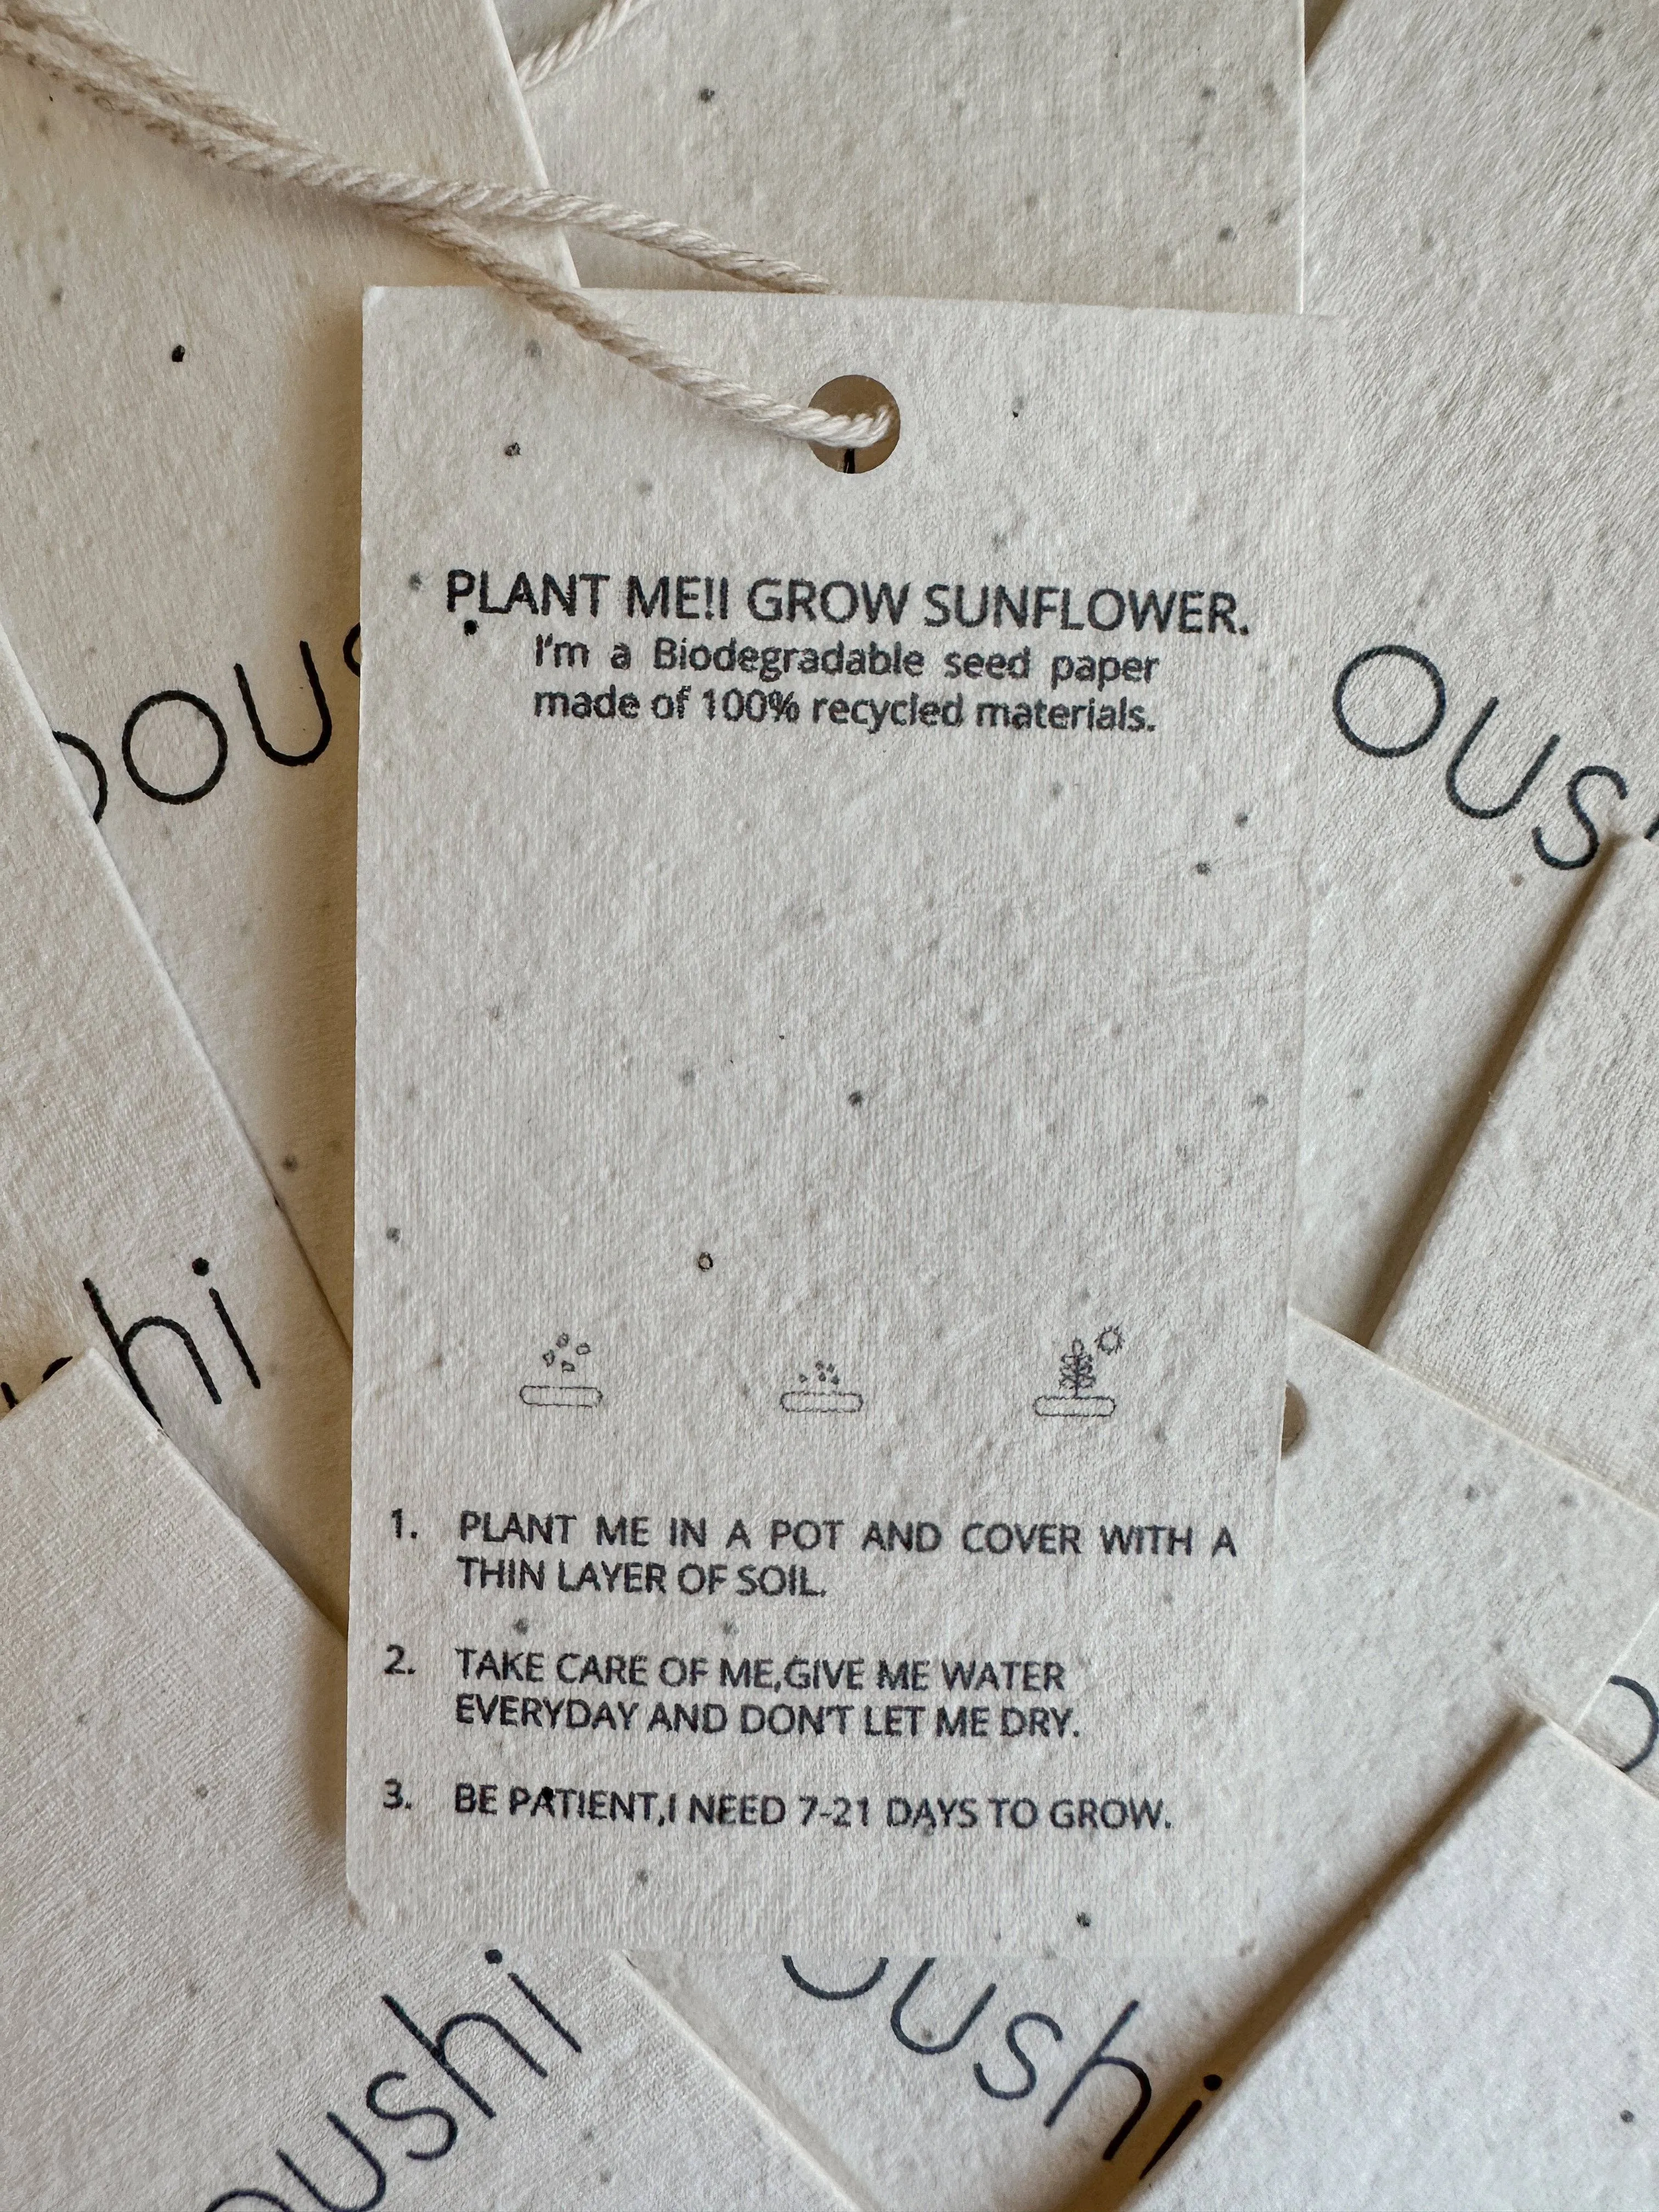 PLANT ME!I GROW SUNFLOWER.
I'm a Biodegradable seed paper
made of 100% recycled materials.
1. PLANT ME IN A POT AND COVER WITH A
THIN LAYER OF SOIL.
2. TAKE CARE OF ME,GIVE ME WATER
EVERYDAY AND DON'T LET ME DRY.
3. BE PATIENT,I NEED 7-21 DAYS TO GROW.
ous
hi
oushi
oushi